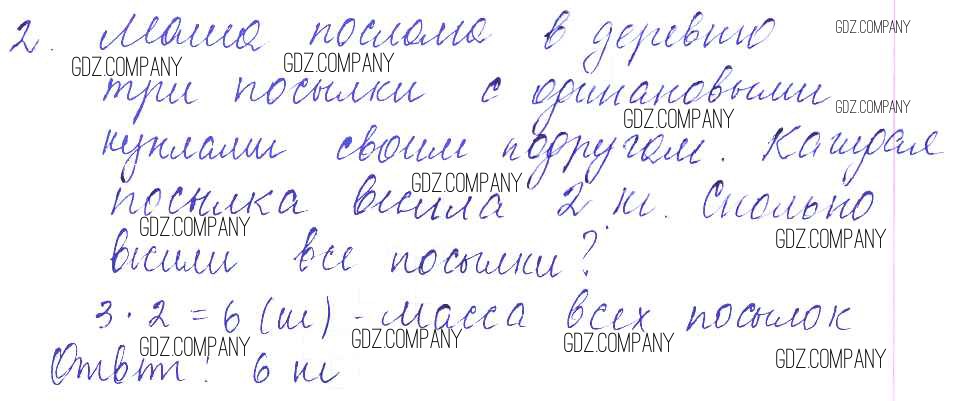 2. Маша послала в деревню
три посылки с одинаковыми
куклами своим подругам. Каждая
посылка весила 2 кг. Сколько
весили все посылки?
3 · 2 = 6 (кг) - масса всех посылок
Ответ: 6 кг
GDZ.COMPANY
GDZ.COMPANY
GDZ.COMPANY
GDZ.COMPANY
GDZ.COMPANY
GDZ.COMPANY
GDZ.COMPANY
GDZ.COMPANY
GDZ.COMPANY
GDZ.COMPANY
GDZ.COMPANY
GDZ.COMPANY